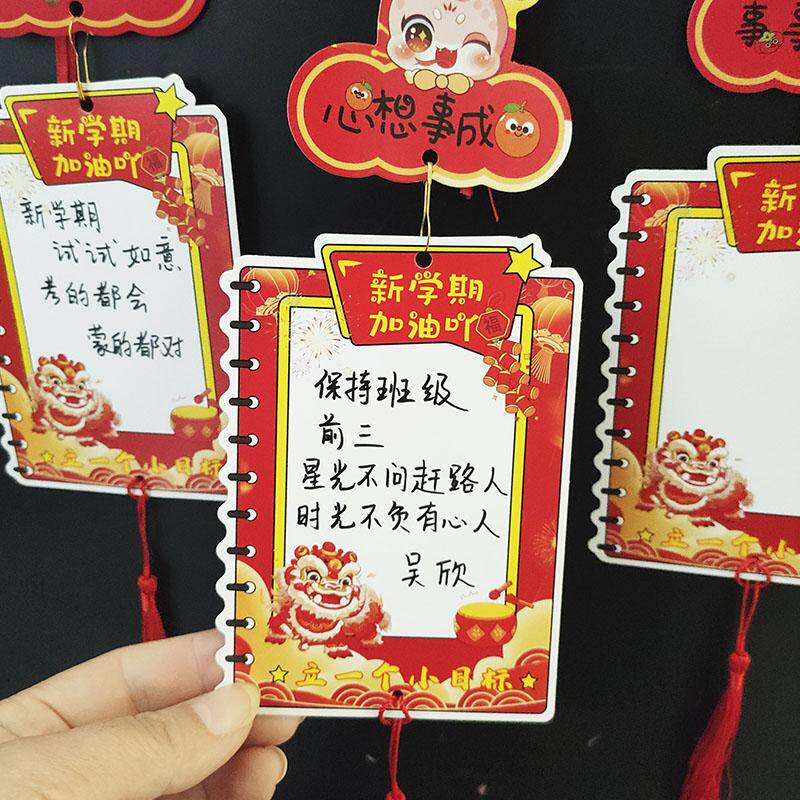 心想事成
事事
新学期
加油吖
福
新学期
试试如意
考的都会
蒙的都对
立一个小目标
新学期
加油吖
福
保持班级
前三
星光不问赶路人
时光不负有心人
吴欣
立一个小目标
新
加
立一个小